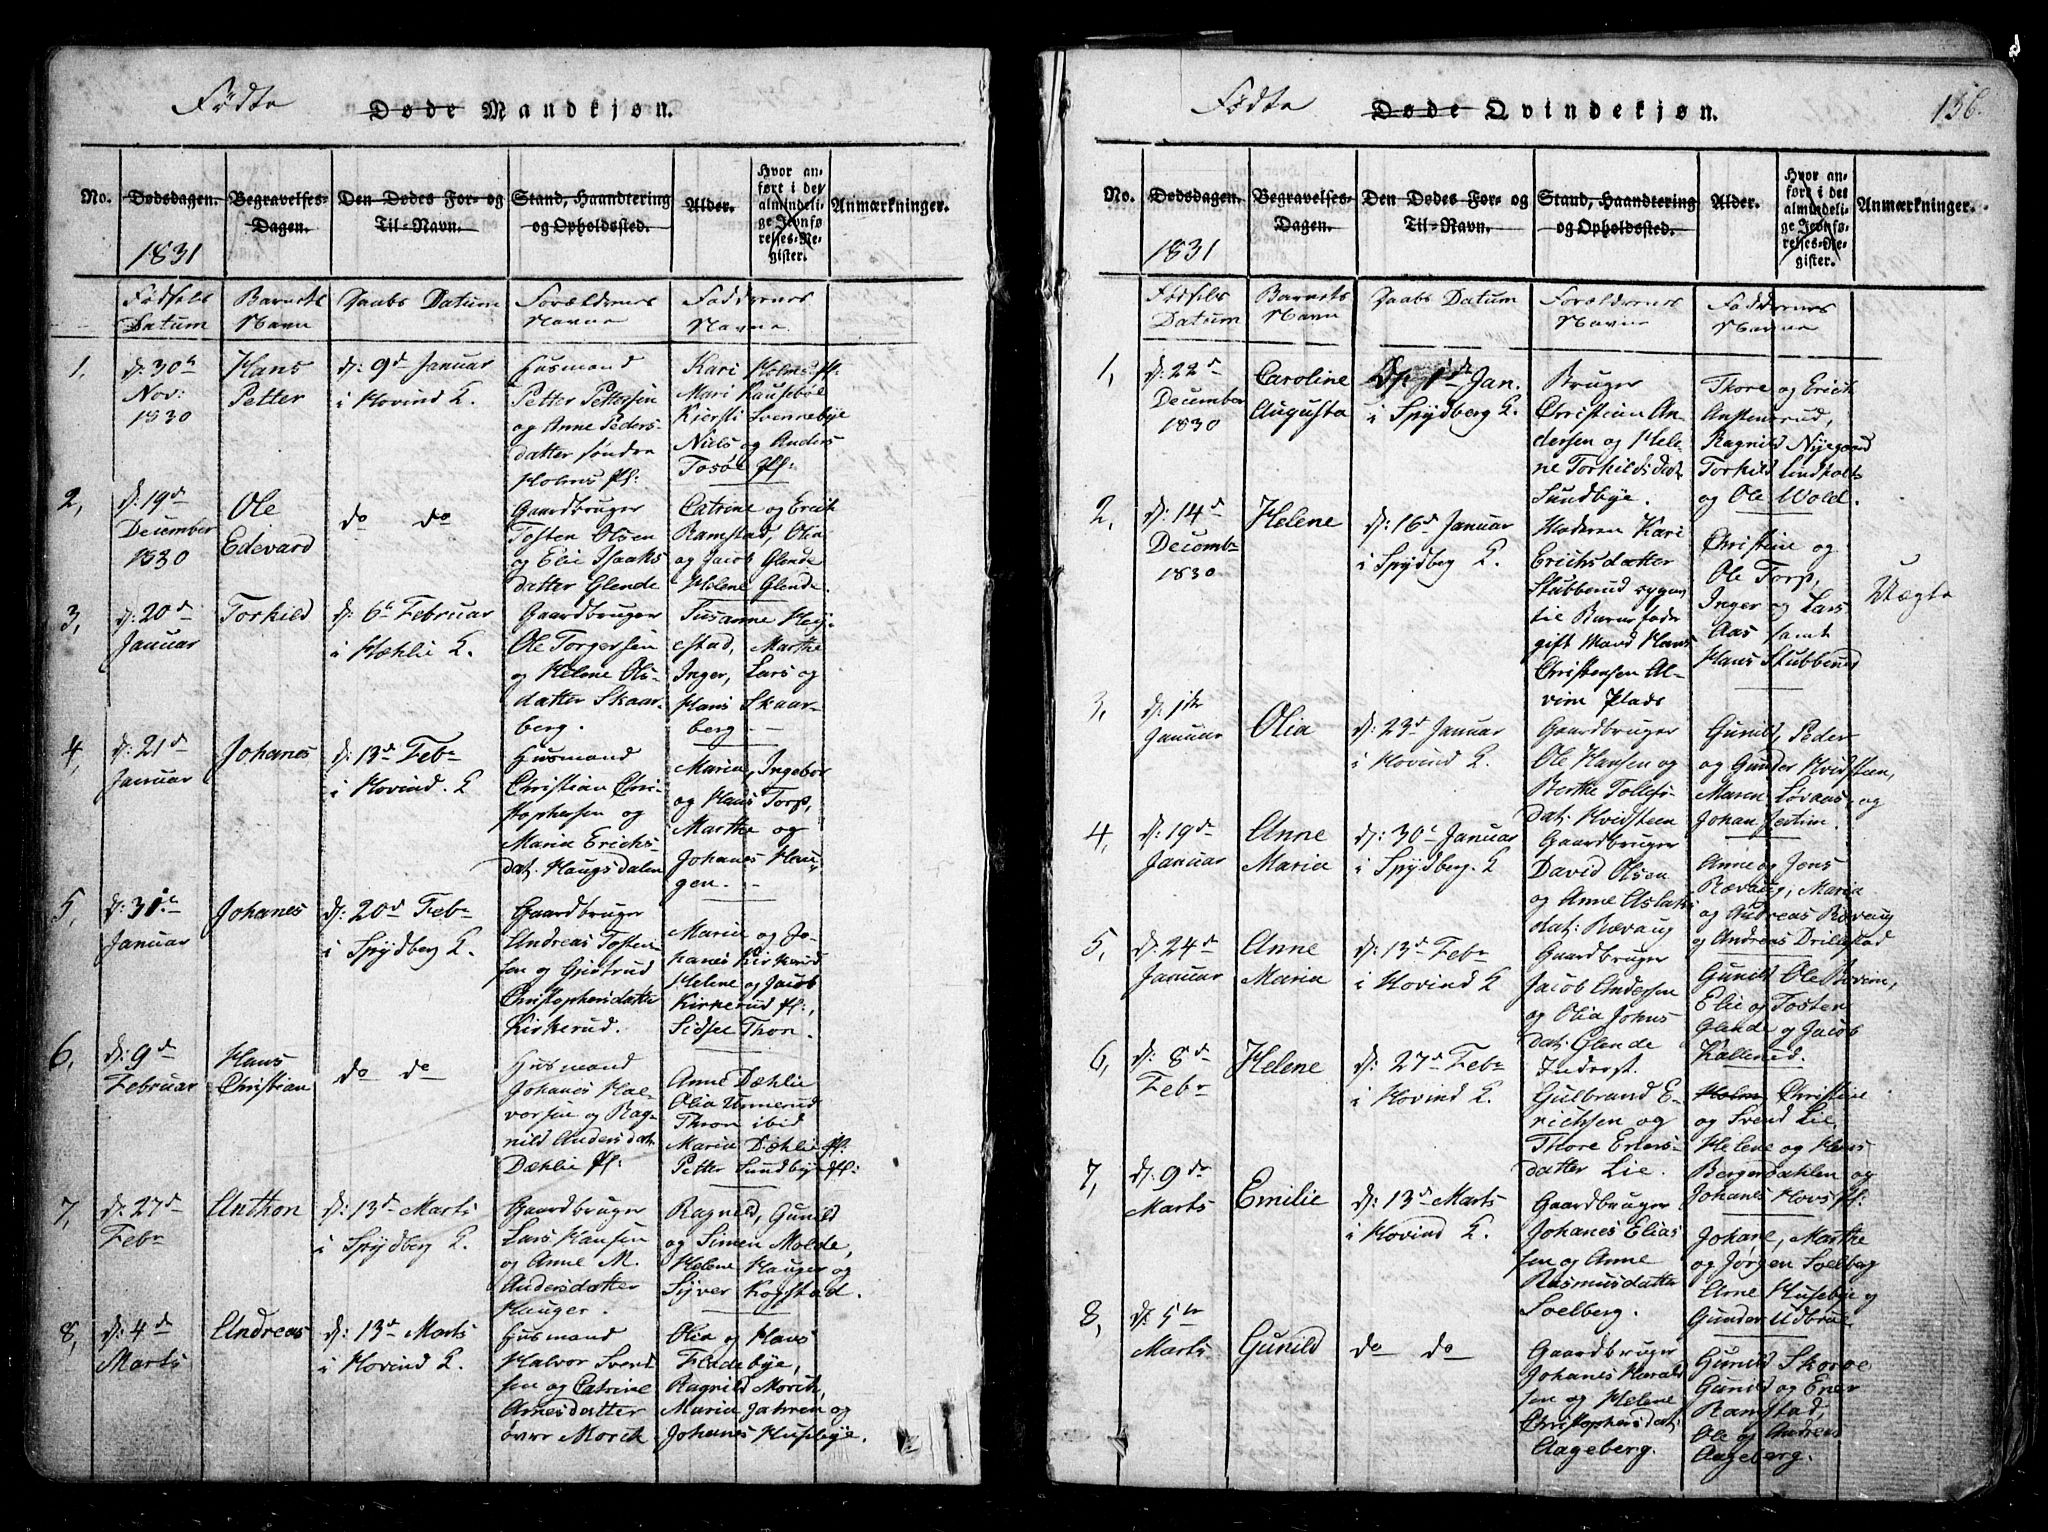 Fødte Døde Mandkjøn.
No. Dødsdagen. Begravelses-Dagen. Den Dødes For- og Til-Navn. Stand, Haandtering og Opholdssted. Alder. Hvor anført i det almindelige Jevnførelses-Register. Anmærkninger.
1831
Fødsels Datum
Barnets Navn
Daabs Datum
Forældrenes Navne
Faddernes Navne
1, d: 30te Nov: 1830
Hans Petter
d: 9d Januar i Hovind K.
Huusmand
Petter Pettersen
og Anne Peders-
datter søndre
Holms Pl:
Kari Holms Pl:
Mari Kausebøl
Kjersti Svennebye
Niels og Anders
Tosøl Pl:
2, d: 19d December 1830
Ole Edevard
do do
Gaardbruger
Tosten Olsen
og Elie Isaaks
datter Glende
Catrine og Erich
Ramstad, Olia
og Jacob Glende
Helene Glende.
3, d: 20d Januar
Torkild
d: 6te Februar i Hæhlie K.
Gaardbruger
Ole Torgersen
og Helene Ols-
datter Skaar-
berg.
Susanne Hey-
estad, Marthe
Inger, Lars og
Hans Skaar-
berg.
4, d: 21d Januar
Johanes
d: 13d Febr i Hovind K
Huusmand
Christian Chri-
stophersen og
Maria Erichs-
dat: Haugsdalen
Maria, Ingebor
og Hans Torp,
Marthe og
Johanes Hau-
gen.
5, d: 31te Januar
Johanes
d: 20d Febr i Spydberg K.
Gaardbruger
Andreas Tosten-
sen og Gjertrud
Christophersdatter
Kirkerud.
Maria og Jo-
hanes Kirkerud
Helene og Jacob
Kirkerud Pl:,
Sidsel Thon.
6, d: 9d Februar
Hans Christian
do do
Huusmand
Johanes Hal-
vorsen og Rag-
nild Andersdat:
Dæhlie Pl:
Anne Dæhlie
Olia Unnerud
Thron ibid
Maria Dæhlie Pl:
Petter Sundbye Pl:
7, d: 27d Febr
Anthon
d: 13d Marts i Spydberg K.
Gaardbruger
Lars Hansen
og Anne M.
Andersdatter
Hauger.
Ragnild, Gunild
og Simen Molde,
Helene Hauger og
Syver Kogstad.
8, d: 4d Marts
Andreas
d: 13d Marts i Hovind K.
Huusmand
Halvor Svend
sen og Catrine
Arnesdatter
øvre Morch
Olia og Hans
Fladebye,
Ragnild Morch,
Maria Jahren og
Johanes Husebye.
Fødte Døde Qvindekjøn. 156.
No. Dødsdagen. Begravelses-Dagen. Den Dødes For- og Til-Navn. Stand, Haandtering og Opholdssted. Alder. Hvor anført i det almindelige Jevnførelses-Register. Anmærkninger.
1831
Fødsels Datum
Barnets Navn
Daabs Datum
Forældrenes Navne
Faddernes Navne
1, d: 22d December 1830
Caroline Augusta
d: 1d Jan. i Spydberg K.
Bruger
Christian An-
dersen og Hele-
ne Torkildsdat.
Sundbye.
Thore og Erich
Anstensrud,
Ragnild Nyegaard
Torkild Lindholt
og Ole Wold.
2, d: 14d Decembr 1830
Helene
d: 16d Januar i Spydberg K.
Moderen Kari
Erichsdatter
Stubberud
til Barnefader
gift Mand Hans
Christensen Al-
vim Plads
Christine og
Ole Torp,
Inger og Lars
Aas samt
Hans Stubberud
Uægte
3, d: 1ste Januar
Olia
d: 23d Januar i Hovind K.
Gaardbruger
Ole Hansen og
Berthe Tollefs-
dat: Hvidsteen
Gunild, Peder
og Gunder Hvidsteen,
Maren Løvaas og
Johan
4, d: 19d Januar
Anne Maria
d: 30te Januar i Spydberg K
Gaardbruger
David Olsen
og Anne Aslaks
dat: Rævaug
Anne og Jens
Rævaug, Maria
og Andreas Rævaug
og Andreas Drilestad
5, d: 24d Januar
Anne Maria
d: 13d Febr i Hovind K
Gaardbruger
Jacob Andersen
og Olia Johns
dat: Glende
Gunild Ole
Elie og Tosten
Glende og Jacob
6, d: 8d Febr
Helene
d: 27d Febr i Hovind K.
Inderst.
Gulbrand E-
richsen og
Thore
datter Lie.
Holm Christine
og Svend Lie,
Helene og Hans
Bergerdahlen og
Johanes Hovs Pl:
7, d: 9de Marts
Emilie
d: 13d Marts i Hovind K.
Gaardbruger
Johanes Elias
sen og Anne
Rasmusdatter
Solberg.
Johane, Marthe
og Jørgen Solberg
Arne Husebye og
Gunder Udbrue
8, d: 5te Marts
Gunild
do do
Gaardbruger
Johanes Harald
sen og Helene
Christophersdat:
Aageberg.
Gunild Skorve
Gunild og Ener
Ramstad,
Ole og Andreas
Aageberg.